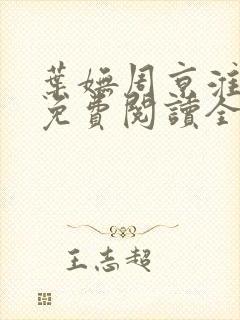 葉嫵周京淮
免費閱讀全
王志超